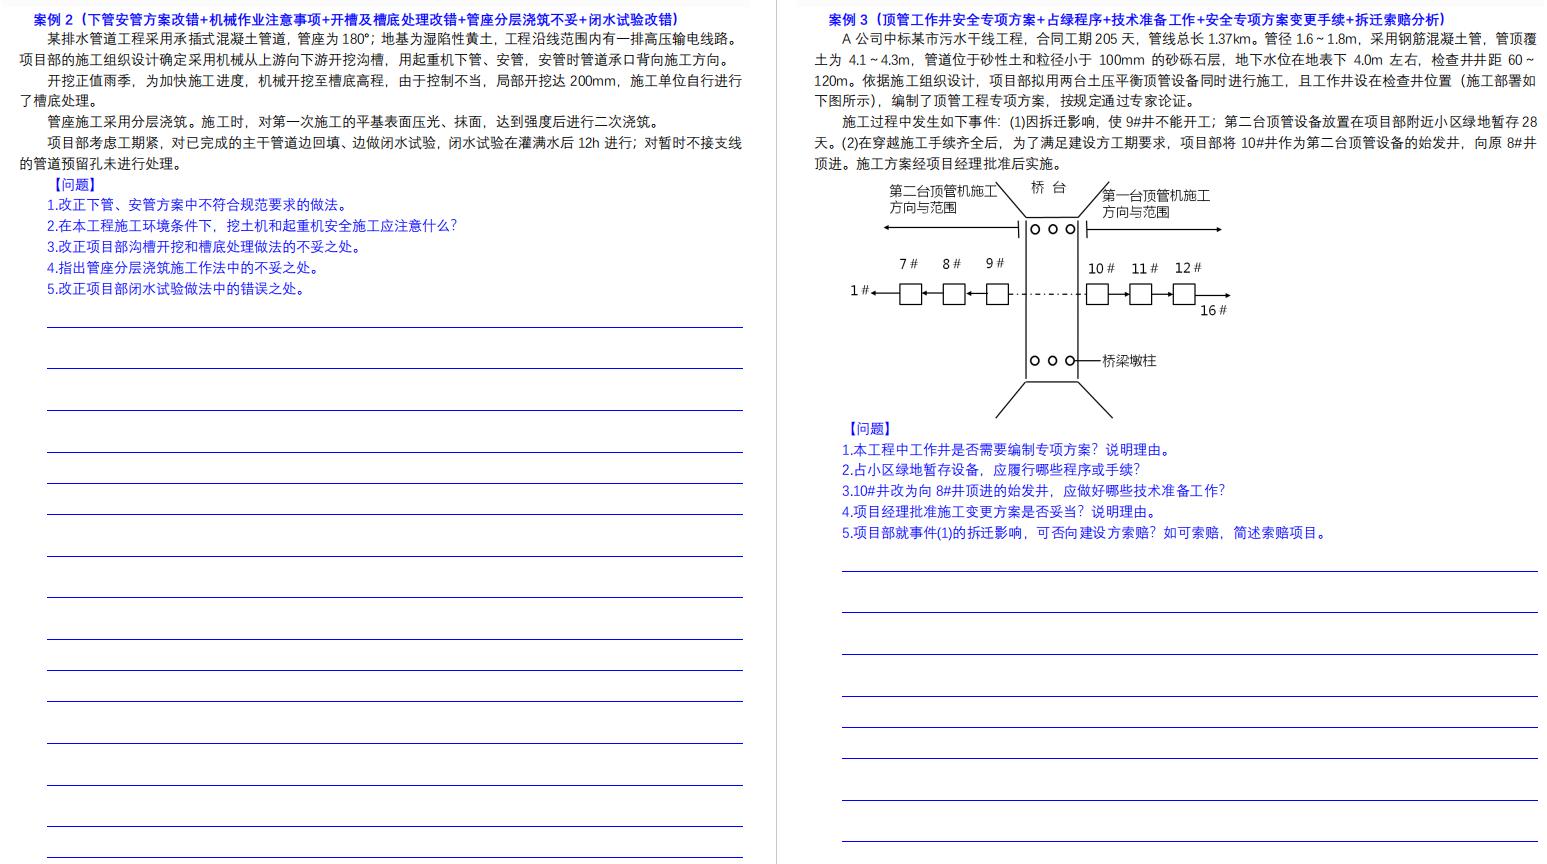 案例 2（下管安管方案改错+机械作业注意事项+开槽及槽底处理改错+管座分层浇筑不妥+闭水试验改错）
某排水管道工程采用承插式混凝土管道，管座为 180°；地基为湿陷性黄土，工程沿线范围内有一排高压输电线路。
项目部的施工组织设计确定采用机械从上游向下游开挖沟槽，用起重机下管、安管，安管时管道承口背向施工方向。
开挖正值雨季，为加快施工进度，机械开挖至槽底高程，由于控制不当，局部开挖达 200mm，施工单位自行进行
了槽底处理。
管座施工采用分层浇筑。施工时，对第一次施工的平基表面压光、抹面，达到强度后进行二次浇筑。
项目部考虑工期紧，对已完成的主干管道边回填、边做闭水试验，闭水试验在灌满水后 12h 进行；对暂时不接支线
的管道预留孔未进行处理。
【问题】
1.改正下管、安管方案中不符合规范要求的做法。
2.在本工程施工环境条件下，挖土机和起重机安全施工应注意什么？
3.改正项目部沟槽开挖和槽底处理做法的不妥之处。
4.指出管座分层浇筑施工作法中的不妥之处。
5.改正项目部闭水试验做法中的错误之处。
案例 3（顶管工作井安全专项方案+占绿程序+技术准备工作+安全专项方案变更手续+拆迁索赔分析）
A 公司中标某市污水干线工程，合同工期 205 天，管线总长 1.37km。管径 1.6～1.8m，采用钢筋混凝土管，管顶覆
土为 4.1～4.3m，管道位于砂性土和粒径小于 100mm 的砂砾石层，地下水位在地表下 4.0m 左右，检查井井距 60～
120m。依据施工组织设计，项目部拟用两台土压平衡顶管设备同时进行施工，且工作井设在检查井位置（施工部署如
下图所示），编制了顶管工程专项方案，按规定通过专家论证。
施工过程中发生如下事件：(1)因拆迁影响，使 9#井不能开工；第二台顶管设备放置在项目部附近小区绿地暂存 28
天。(2)在穿越施工手续齐全后，为了满足建设方工期要求，项目部将 10#井作为第二台顶管设备的始发井，向原 8#井
顶进。施工方案经项目经理批准后实施。
第二台顶管机施工
方向与范围
桥 台
第一台顶管机施工
方向与范围
7＃ 8＃ 9＃ 10＃ 11＃ 12＃
1＃
16＃
桥梁墩柱
【问题】
1.本工程中工作井是否需要编制专项方案？说明理由。
2.占小区绿地暂存设备，应履行哪些程序或手续？
3.10#井改为向 8#井顶进的始发井，应做好哪些技术准备工作？
4.项目经理批准施工变更方案是否妥当？说明理由。
5.项目部就事件(1)的拆迁影响，可否向建设方索赔？如可索赔，简述索赔项目。